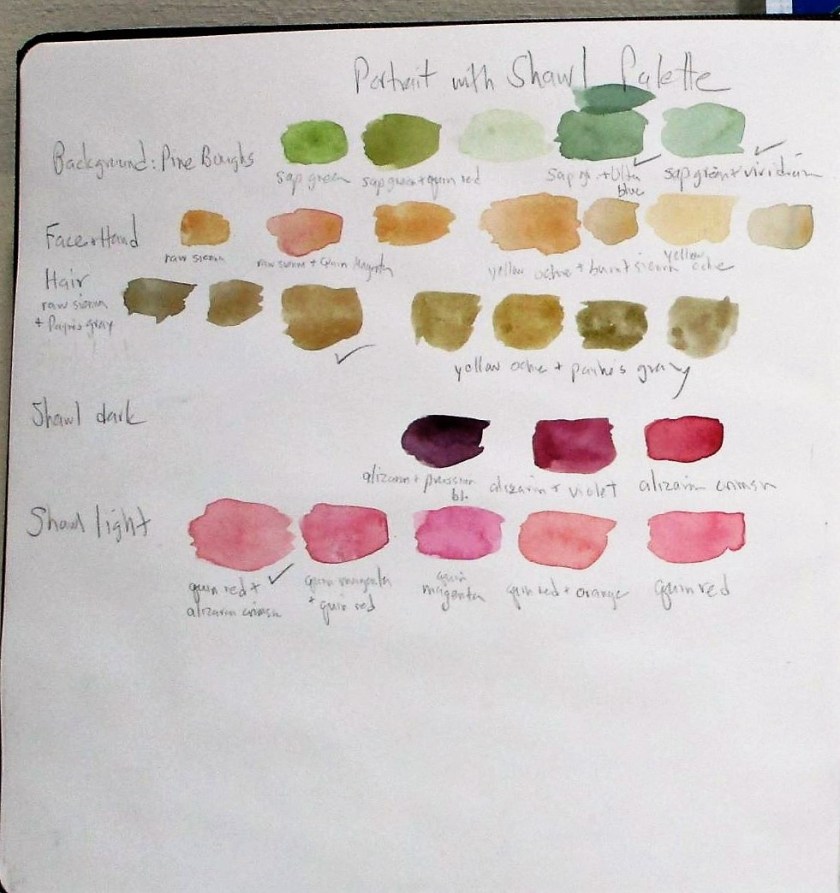 Portrait with Shawl Palette
Background: Pine Boughs
sap green
sap green + quin red
sap gr. + Ultra
blue
sap green + viridian
Face + Hand
raw sienna
raw sienna + Quin Magenta
yellow ochre + burnt sienna
yellow
ochre
Hair
raw sienna
+ Paynes gray
yellow ochre + paynes gray
Shawl dark
alizarin + prussian
bl.
alizarin + violet
alizarin crimson
Shawl light
quin red +
alizarin crimson
quin magenta
+ quin red
quin
magenta
quin red + orange
quin red